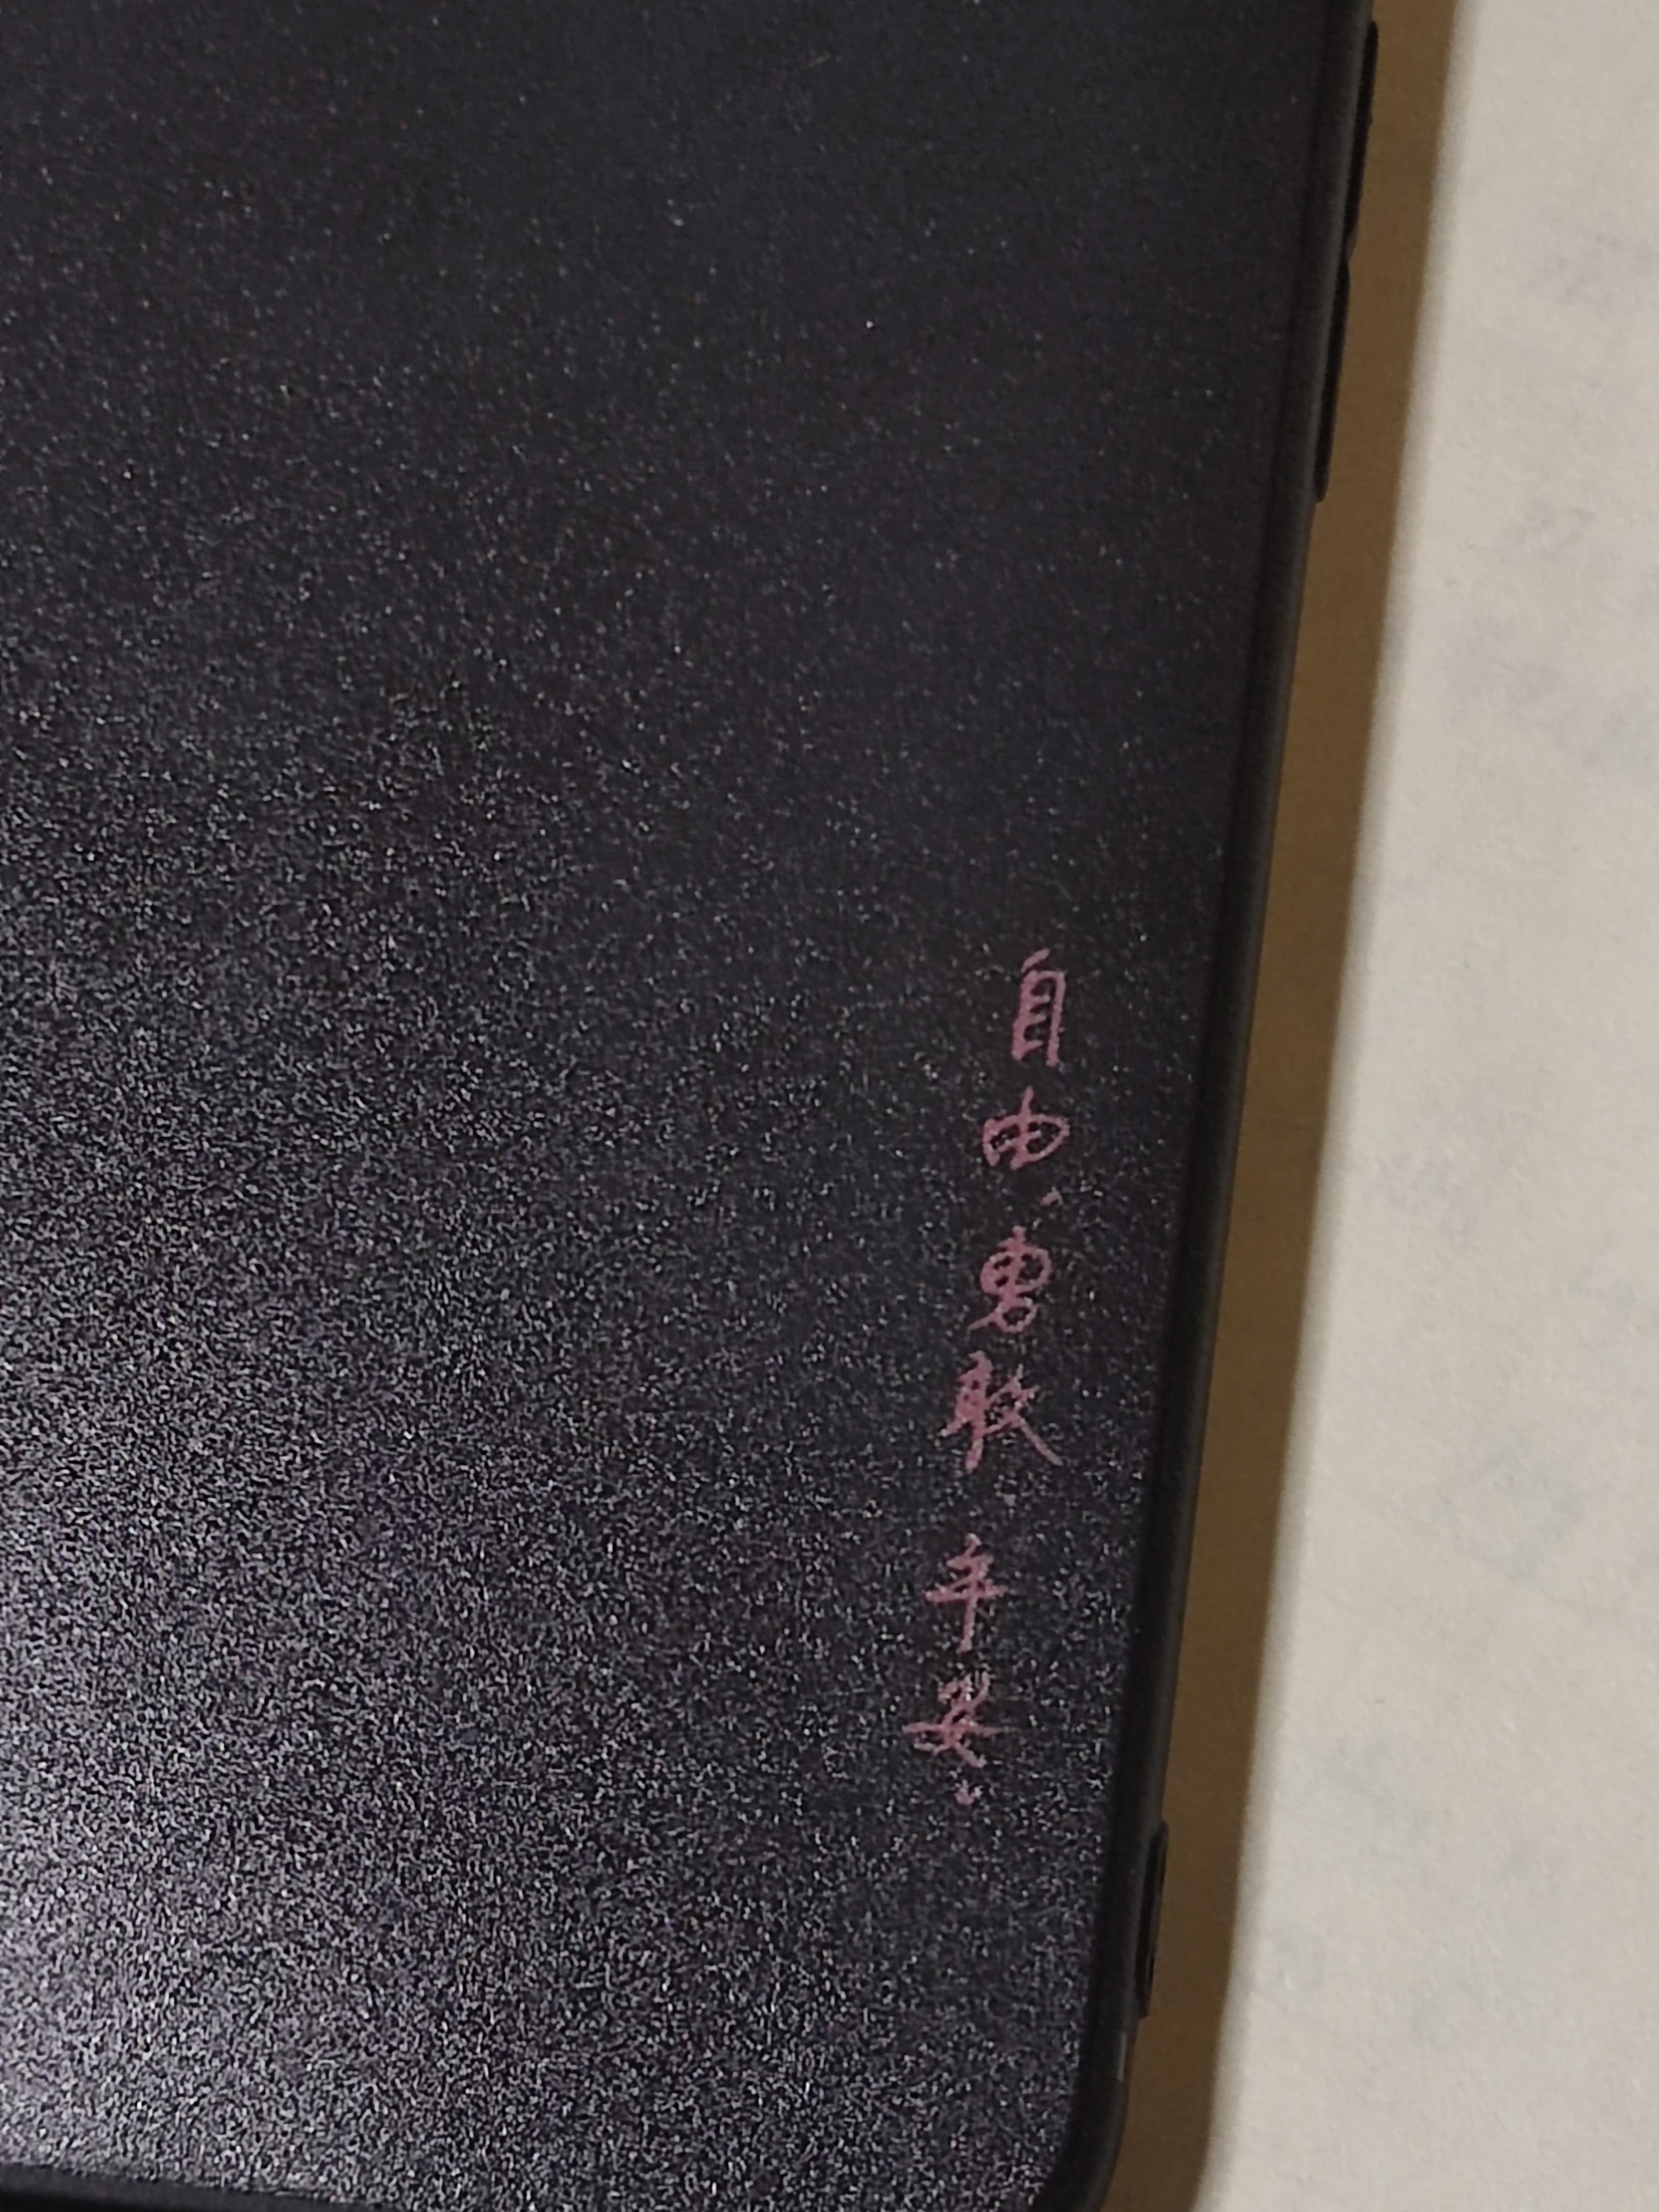 自由、勇敢、平安。